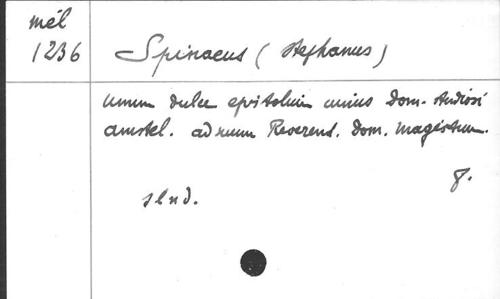 mél
1236
Spinaeus (Stephanus)
unum dulce epistolium unius Dom. studiosi
amstel. ad suum Reverend. Dom. Magistrum.
8.
sl nd.